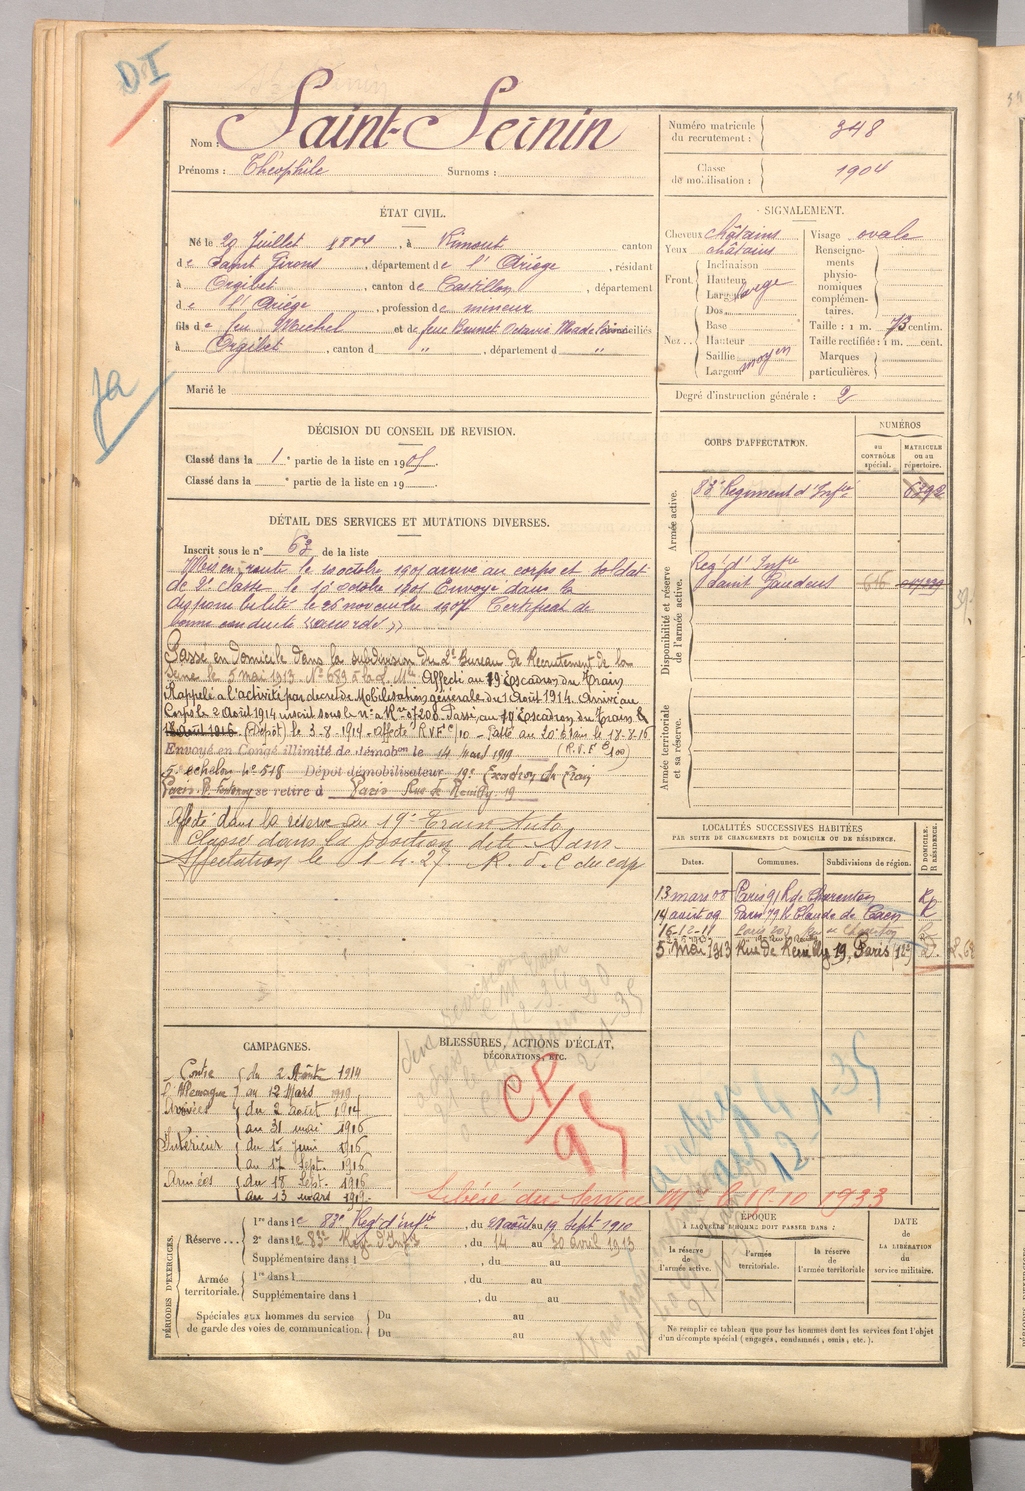 DI
Nom : Saint-Sernin
Prénoms : Théophile Surnoms :
Numéro matricule du recrutement : 348
Classe de mobilisation : 1904
ÉTAT CIVIL.
Né le 29 Juillet 1884, à Rimont canton
de Saint Girons, département de l'Ariège, résidant
à Orgibet, canton de Castillon, département
de l'Ariège, profession de mineur
fils de feu Michel et de feue Brunet Octavie domiciliés
à Orgibet, canton d " , département d "
Marié le
SIGNALEMENT.
Cheveux châtains
Yeux châtains
Front Inclinaison
Hauteur
Larg. large
Nez Dos
Base
Hauteur
Saillie
Largeur moyen
Visage ovale
Renseignements physionomiques complémentaires.
Taille : 1 m. 73 centim.
Taille rectifiée : 1 m. cent.
Marques particulières.
Degré d'instruction générale : 2
DÉCISION DU CONSEIL DE REVISION.
Classé dans la 1e partie de la liste en 1905
Classé dans la e partie de la liste en 19
CORPS D'AFFECTATION.
NUMÉROS
au CONTRÔLE spécial.
MATRICULE ou au répertoire.
Armée active.
83e Régiment d'Infie 6392
Disponibilité et réserve de l'armée active.
Reg' d'Infie
Saint Gaudens 616
Armée territoriale et sa réserve.
DÉTAIL DES SERVICES ET MUTATIONS DIVERSES.
Inscrit sous le n° 63 de la liste
Mis en route le 10 octobre 1905 arrivé au corps et soldat
de 2e classe le 10 octobre 1905 Envoyé dans la
disponibilité le 26 novembre 1907 Certificat de
bonne conduite "accordé"
Passé en domicile dans la subdivision du 2e Bureau de Recrutement de la
Seine le 5 mai 1913 Affecté au 19 Escadron du Train
Rappelé à l'activité par décret de Mobilisation générale du 1 Août 1914. Arrivé au
Corps le 2 Août 1914 inscrit sous le n° Passé au 19 Escadron du Train le
(Dépôt) le 3-8-1914 - affecté R.V.F. /10 - Passé au 20e Train le 18-8-16
Envoyé en Congé illimité de démobon le 14 Mars 1919 (R.V.F.
5e échelon n° 518 Dépôt démobilisateur 19e Escadron du Train
Paris se retire à Paris Rue de Reuilly 19
Affecté dans la réserve au 19e Train Auto
Classé dans la position dite Sans
Affectation le 1.4.27
LOCALITÉS SUCCESSIVES HABITÉES
PAR SUITE DE CHANGEMENTS DE DOMICILE OU DE RÉSIDENCE.
Dates. Communes. Subdivisions de région. D DOMICILE. R RÉSIDENCE.
13 mars 08 Paris 91 R de Charenton R
14 août 09 Paris 79 R Claude de Caen R
16-12-11 Paris
5 Mai 1913 Rue de Reuilly 19, Paris (12e) D
CAMPAGNES.
Contre du 2 Août 1914
l'Allemagne au 12 Mars 1919
Armées du 2 août 1914
au 31 mai 1916
Intérieur du 1er Juin 1916
au 17 Sept. 1916
Armées du 18 Sept. 1916
au 13 mars 1919.
BLESSURES, ACTIONS D'ÉCLAT,
DÉCORATIONS, ETC.
CP/
95
12-1-35
Libéré du Service Mre le 15-10 1933
PÉRIODES D'EXERCICES.
Réserve... 1re dans le 83e Reg' d'Infie, du 28 août au 19 Sept 1910
2e dans le 83e Reg' d'Infie, du 14 au 30 avril 1913
Supplémentaire dans l , du au
Armée territoriale. 1re dans l
Supplémentaire dans l , du au
Spéciales aux hommes du service de garde des voies de communication. Du au
Du au
ÉPOQUE
À LAQUELLE L'HOMME DOIT PASSER DANS :
la réserve de l'armée active.
l'armée territoriale.
la réserve de l'armée territoriale
DATE DE LA LIBÉRATION du service militaire.
Ne remplir ce tableau que pour les hommes dont les services font l'objet
d'un décompte spécial (engagés, condamnés, omis, etc.).